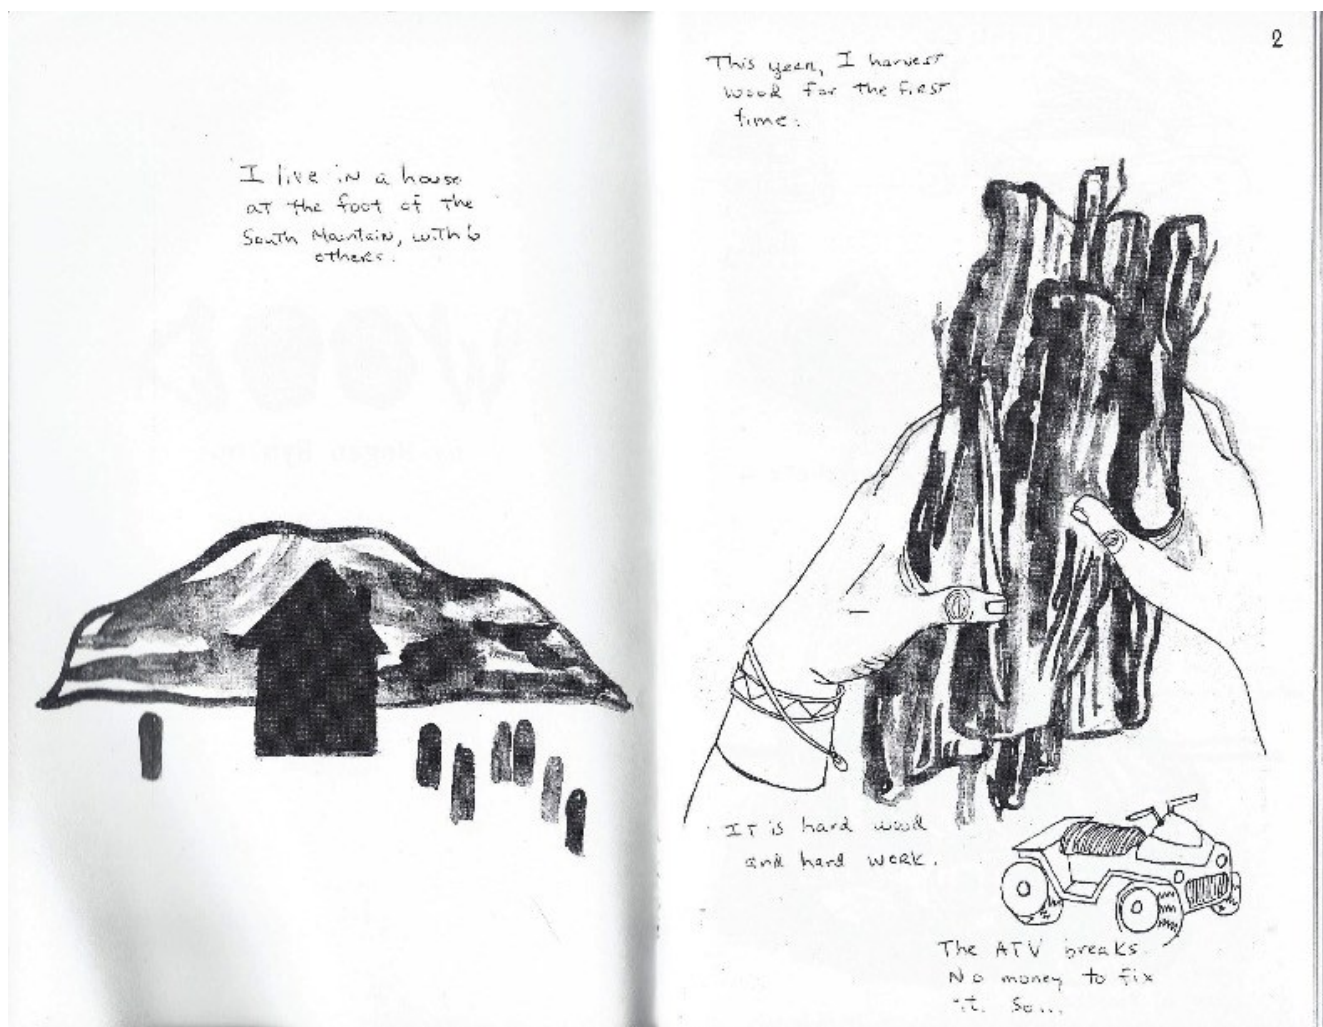 I live in a house
at the foot of the
South Mountain, with 6
others.
2
This year, I harvest
wood for the first
time.
It is hard wood
and hard work.
The ATV breaks.
No money to fix
it. So...